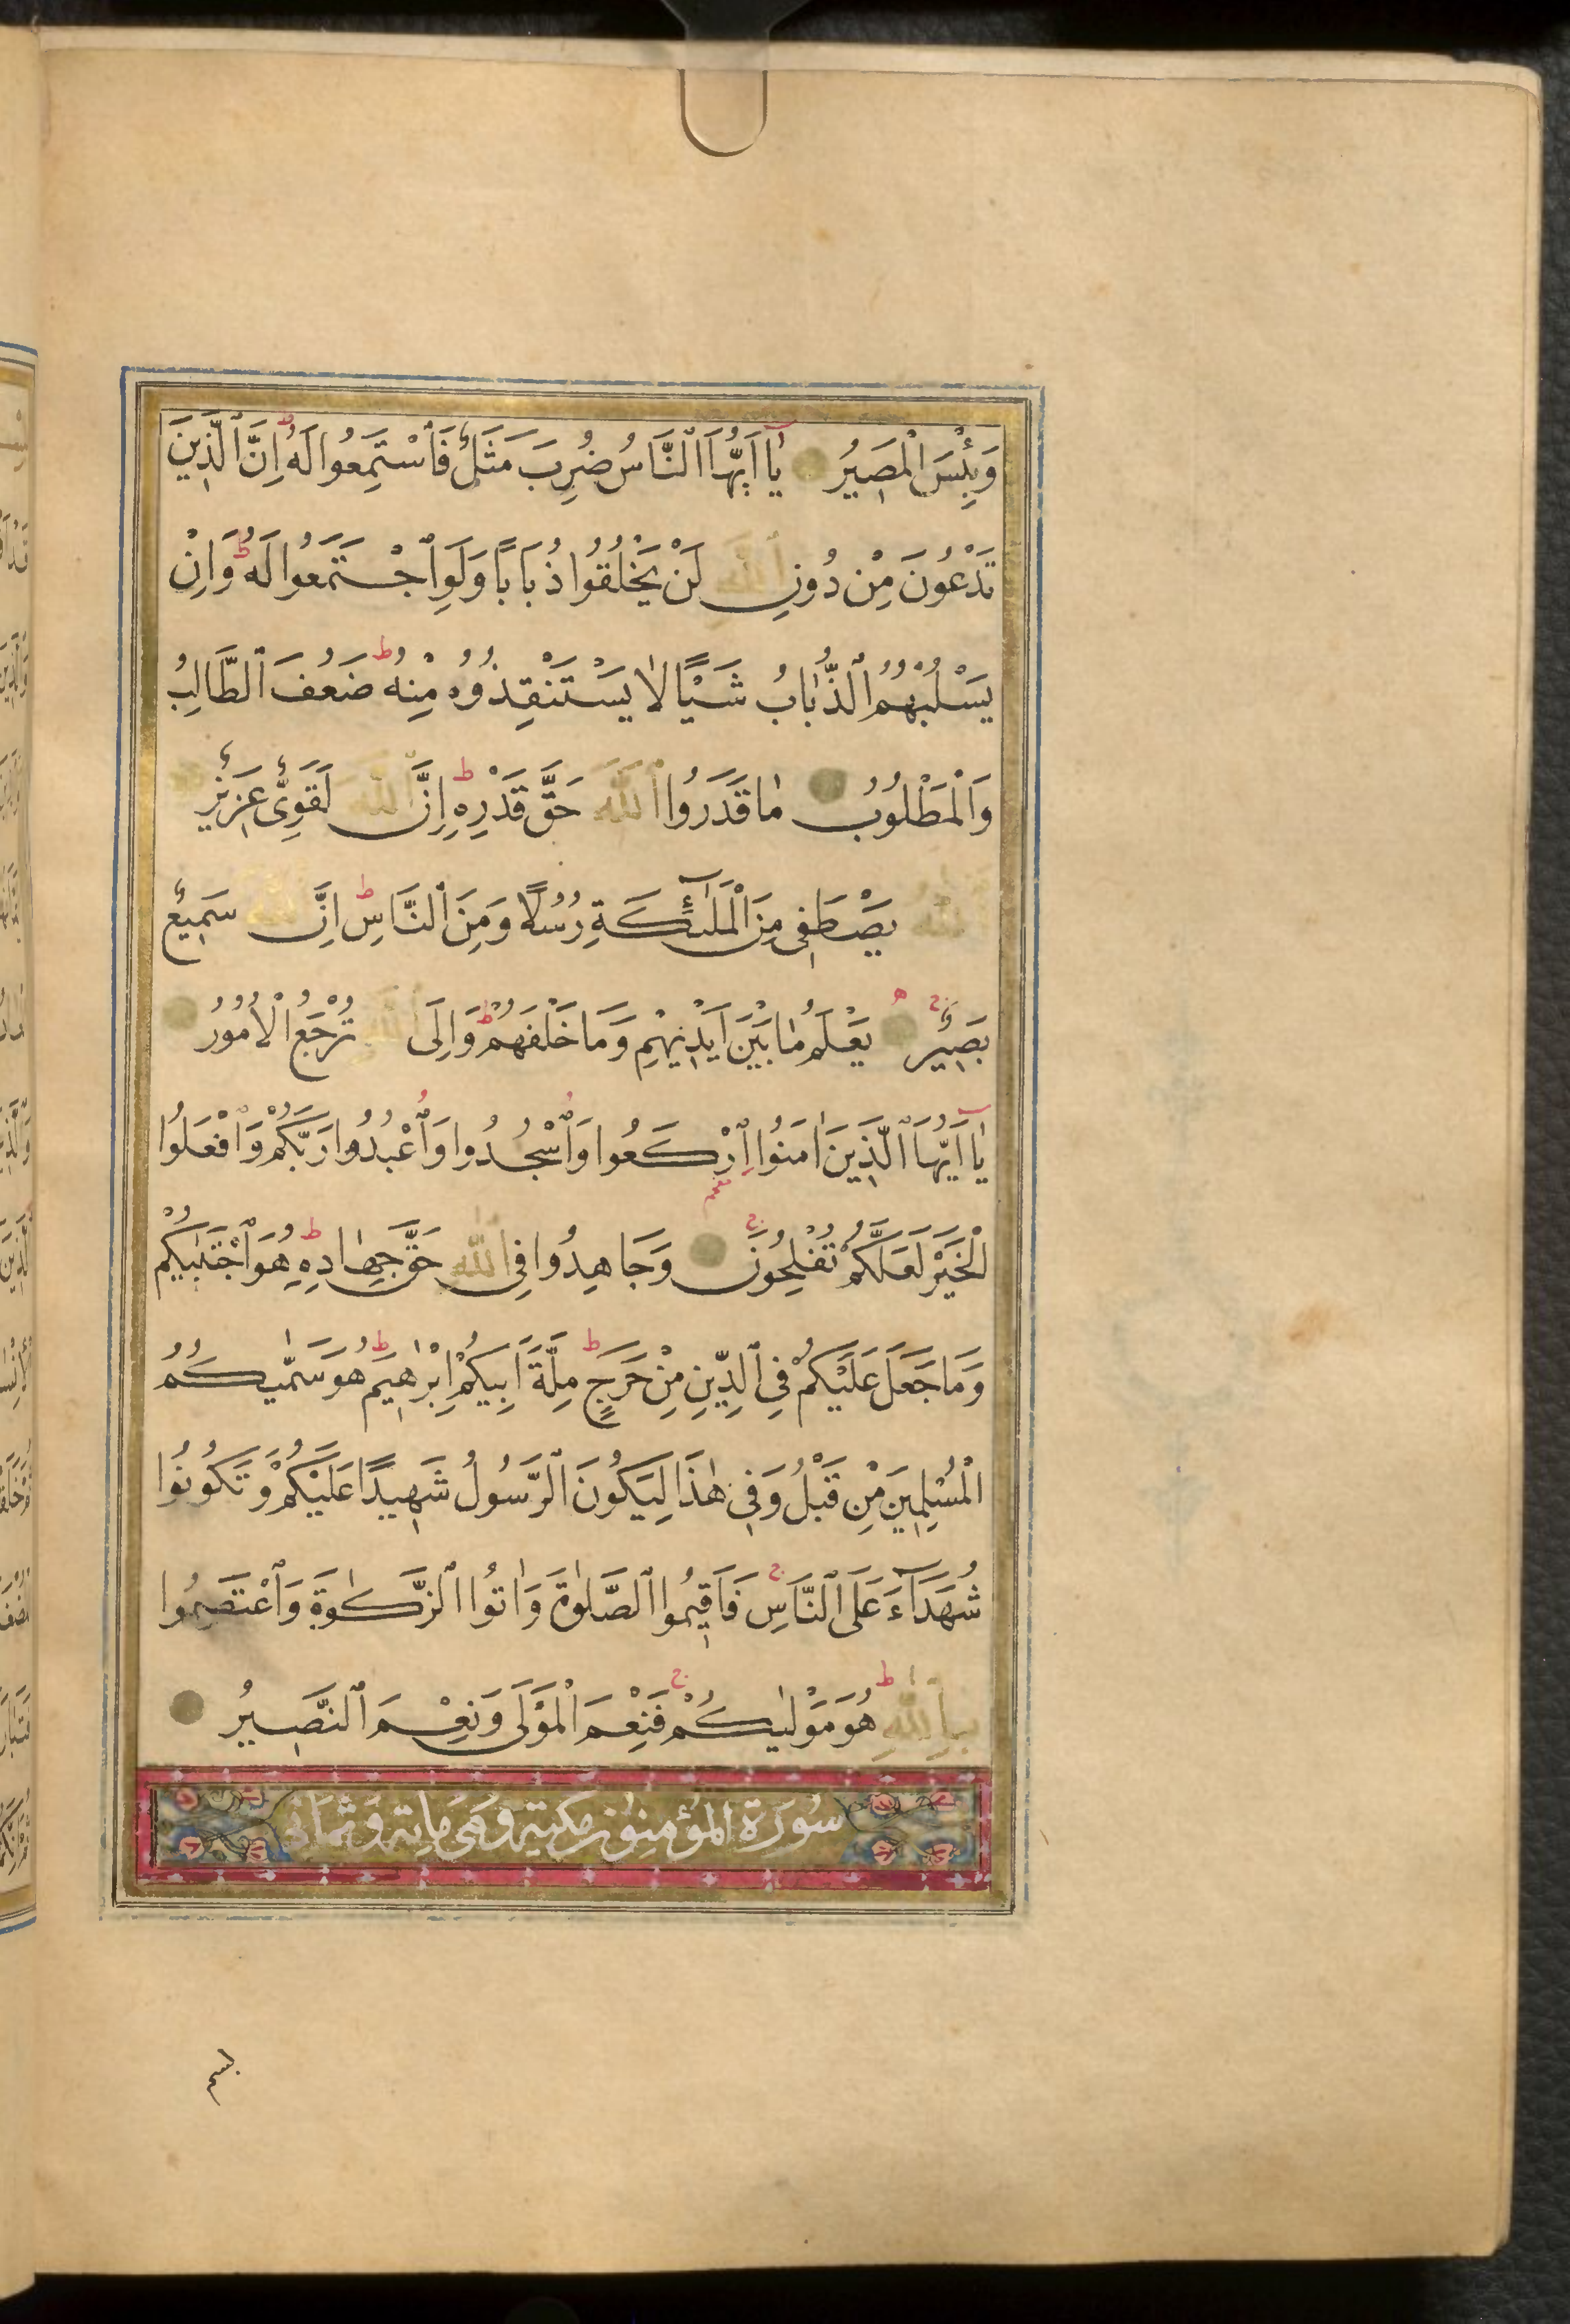 وَبِئْسَ الْمَصِيرُ يَا اَيُّهَا النَّاسُ ضُرِبَ مَثَلٌ فَاسْتَمِعُوا لَهُ ط اِنَّ الَّذِينَ
تَدْعُونَ مِنْ دُونِ اللّٰهِ لَنْ يَخْلُقُوا ذُبَابًا وَلَوِ اجْتَمَعُوا لَهُ ط وَاِنْ
يَسْلُبْهُمُ الذُّبَابُ شَيْئًا لَا يَسْتَنْقِذُوهُ مِنْهُ ط ضَعُفَ الطَّالِبُ
وَالْمَطْلُوبُ مَا قَدَرُوا اللّٰهَ حَقَّ قَدْرِهِ ط اِنَّ اللّٰهَ لَقَوِىٌّ عَزِيزٌ
اللّٰهُ يَصْطَفِى مِنَ الْمَلٰٓئِكَةِ رُسُلًا وَمِنَ النَّاسِ ط اِنَّ اللّٰهَ سَمِيعٌ
بَصِيرٌ ج يَعْلَمُ مَا بَيْنَ اَيْدِيهِمْ وَمَا خَلْفَهُمْ ط وَاِلَى اللّٰهِ تُرْجَعُ الْاُمُورُ
يَا اَيُّهَا الَّذِينَ اٰمَنُوا ارْكَعُوا وَاسْجُدُوا وَاعْبُدُوا رَبَّكُمْ وَافْعَلُوا
الْخَيْرَ لَعَلَّكُمْ تُفْلِحُونَ ج وَجَاهِدُوا فِى اللّٰهِ حَقَّ جِهَادِهِ ط هُوَ اجْتَبٰيكُمْ
وَمَا جَعَلَ عَلَيْكُمْ فِى الدِّينِ مِنْ حَرَجٍ ط مِلَّةَ اَبِيكُمْ اِبْرٰهِيمَ ط هُوَ سَمّٰيكُمُ
الْمُسْلِمِينَ مِنْ قَبْلُ وَفِى هٰذَا لِيَكُونَ الرَّسُولُ شَهِيدًا عَلَيْكُمْ وَتَكُونُوا
شُهَدَآءَ عَلَى النَّاسِ ج فَاَقِيمُوا الصَّلٰوةَ وَاٰتُوا الزَّكٰوةَ وَاعْتَصِمُوا
بِاللّٰهِ ط هُوَ مَوْلٰيكُمْ ج فَنِعْمَ الْمَوْلَى وَنِعْمَ النَّصِيرُ
سُورَةُ الْمُؤْمِنُونَ مَكِّيَّة وَهِىَ مِائَة وَثَمَانِى
بسم